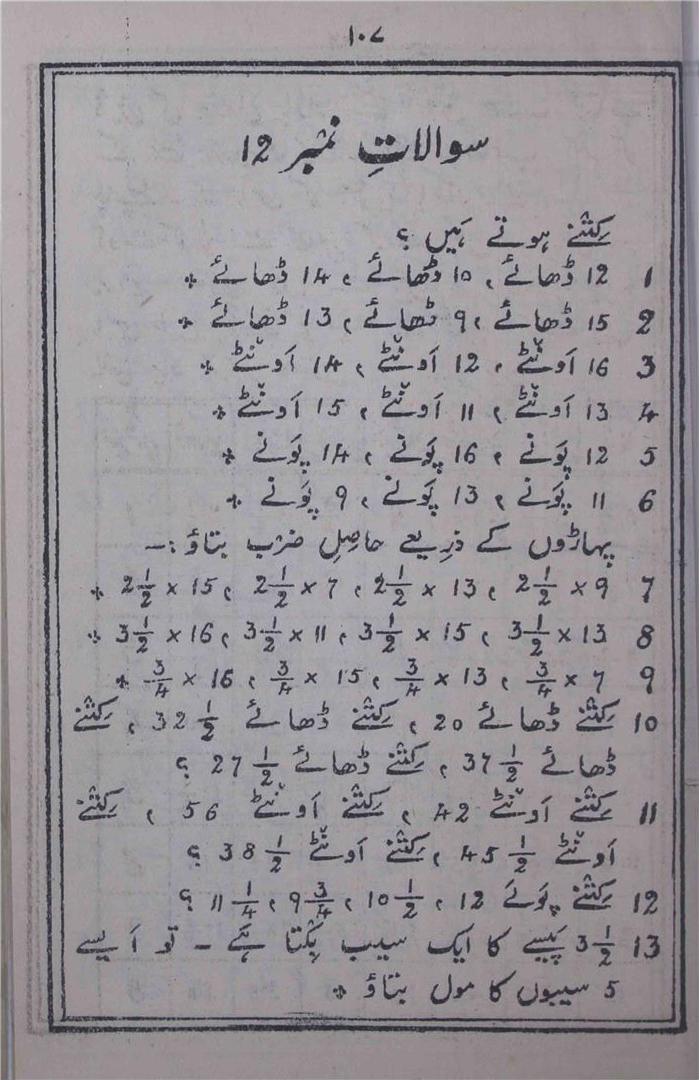 ۱۰۷
سوالاتِ نمبر 12
کِتنے ہوتے ہَیں ؟
1 12 ڈھائے، 10 ڈھائے، 14 ڈھائے *
2 15 ڈھائے، 9 ڈھائے، 13 ڈھائے *
3 16 اَونٹے، 12 اَونٹے، 14 اَونٹے *
4 13 اَونٹے، 11 اَونٹے، 15 اَونٹے *
5 12 پَونے، 16 پَونے، 14 پَونے *
6 11 پَونے، 13 پَونے، 9 پَونے *
پہاڑوں کے ذرِیعے حاصِلِ ضرب بتاؤ :ـ
7 2½ × 9، 2½ × 13، 2½ × 7، 2½ × 15 *
8 3½ × 13، 3½ × 15، 3½ × 11، 3½ × 16 *
9 ¾ × 7، ¾ × 13، ¾ × 15، ¾ × 16 *
10 کِتنے ڈھائے 20، کِتنے ڈھائے 32½، کِتنے
ڈھائے 37½، کِتنے ڈھائے 27½ ؟
11 کِتنے اَونٹے 42، کِتنے اَونٹے 56، کِتنے
اَونٹے 45½، کِتنے اَونٹے 38½ ؟
12 کِتنے پَونے 12، 10½، 9¾، 11¼ ؟
13 3½ پَیسے کا ایک سیب بِکتا ہَے ـ تو اَیسے
5 سیبوں کا مول بتاؤ *